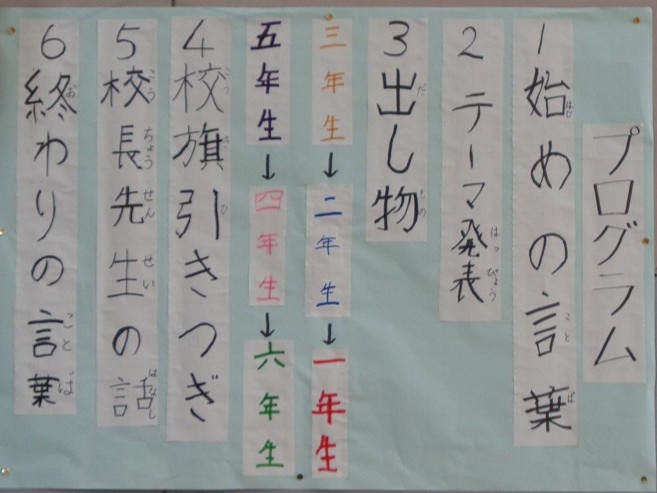 プログラム
1 始めの言葉
2 テーマ発表
3 出し物
三年生→二年生→一年生
五年生→四年生→六年生
4 校旗引きつぎ
5 校長先生の話
6 終わりの言葉